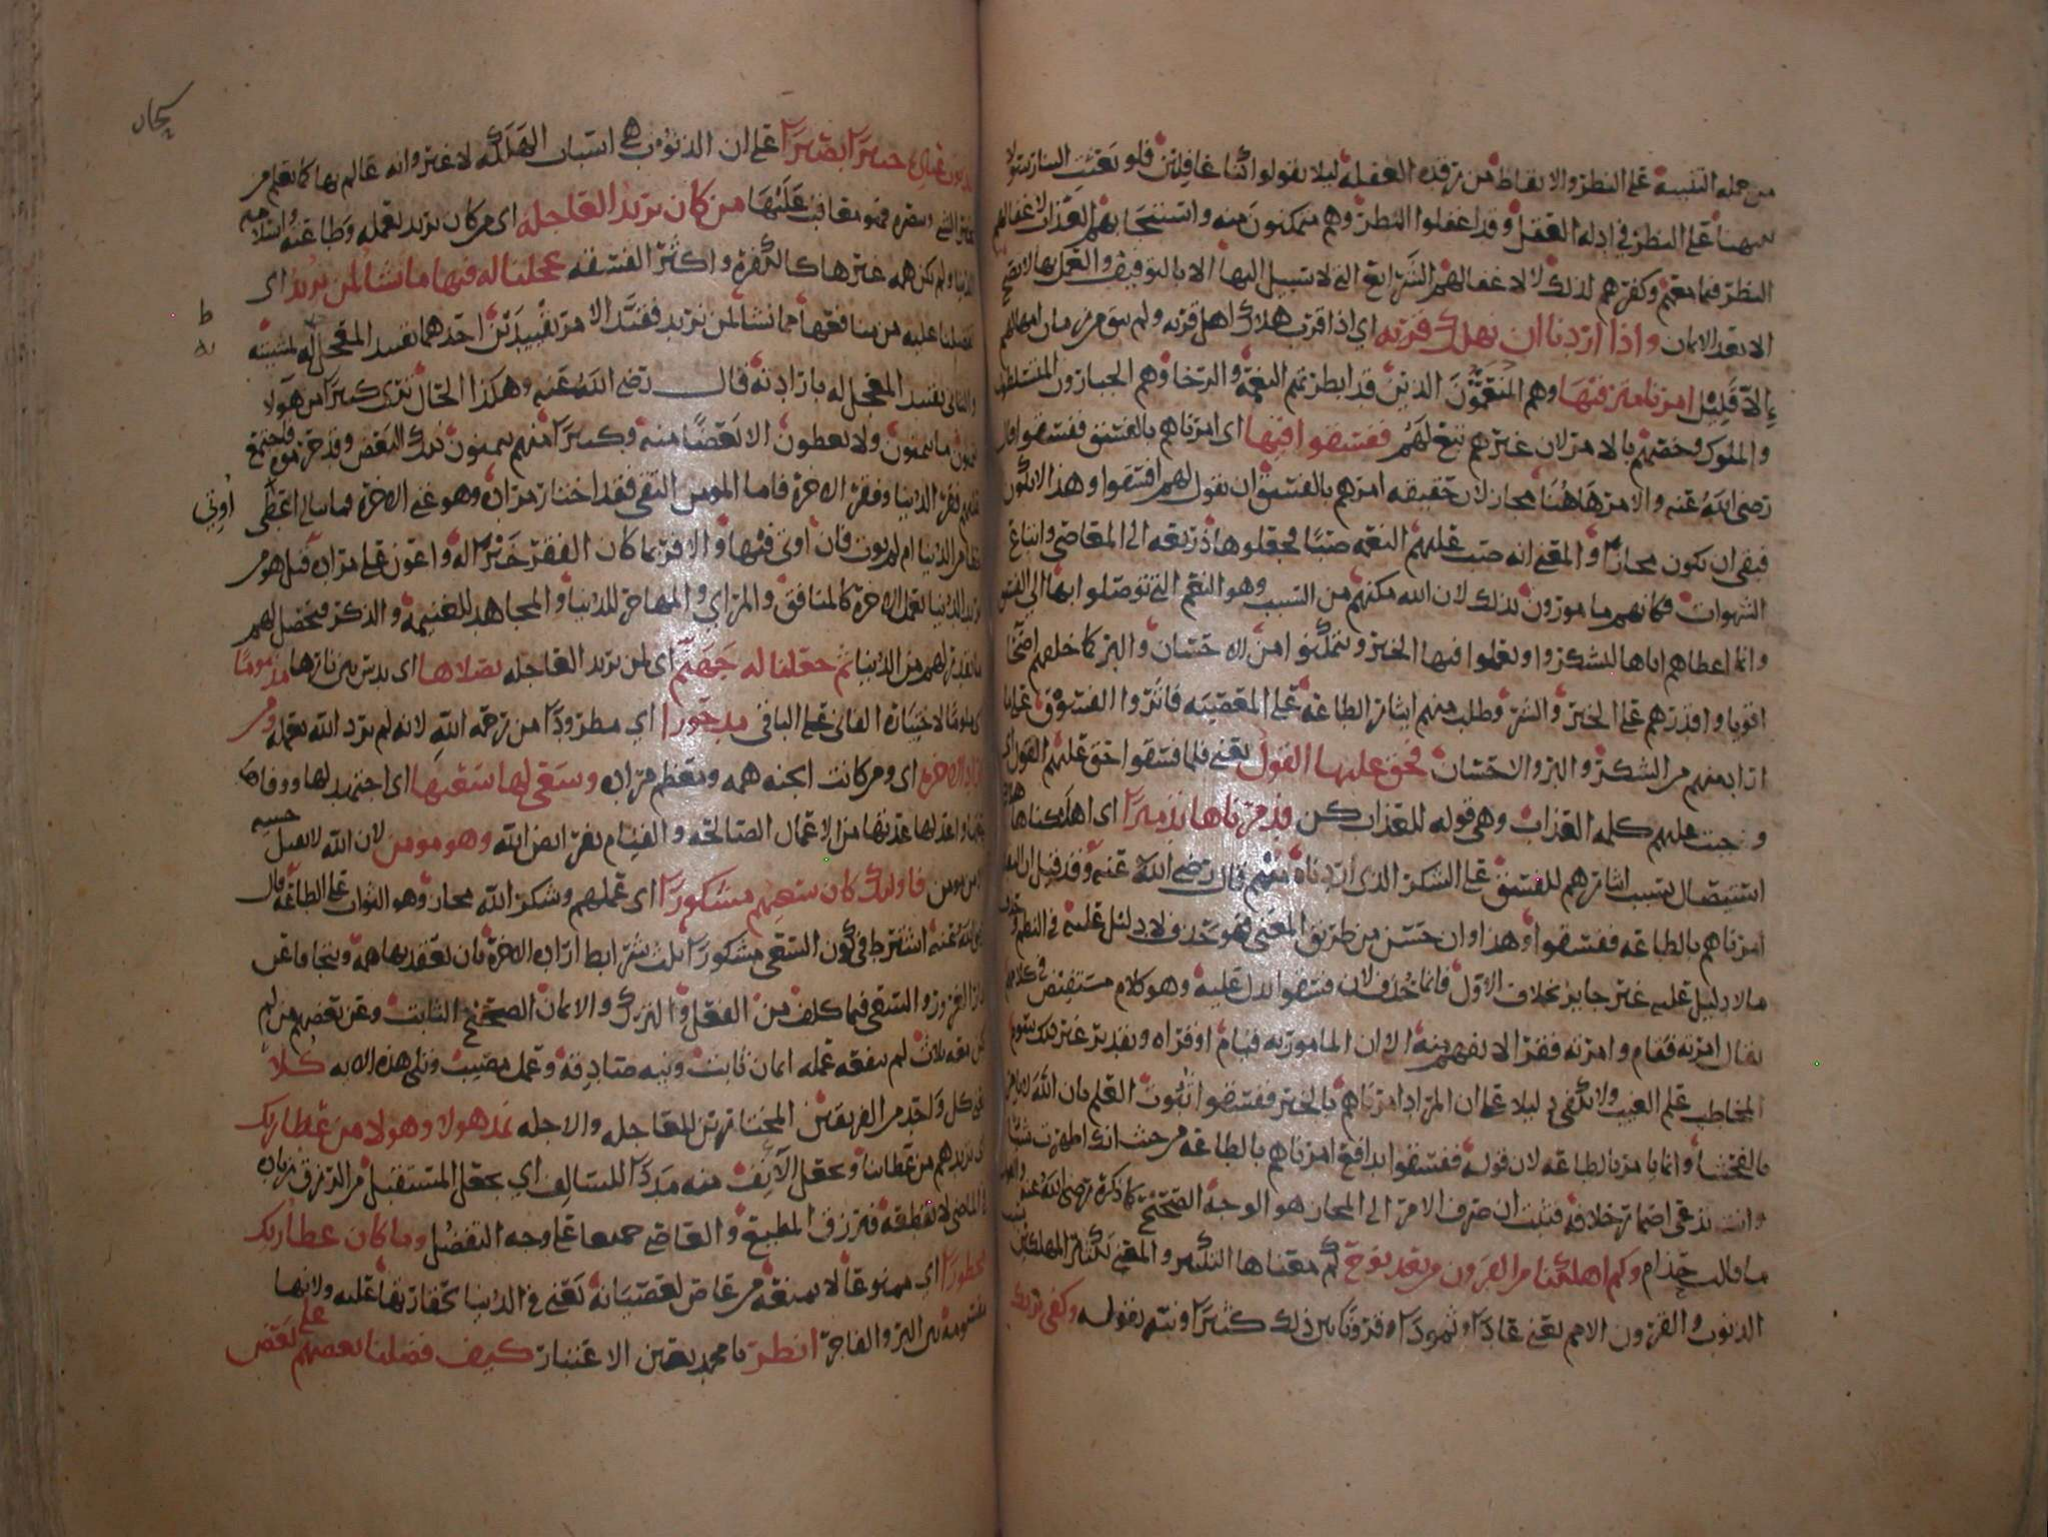 من جمله التنبيه على النظر والايقاظ من رقده الغفله ليلا يقولوا كنا غافلين فلو بعثت الينا رسولا
ينبهنا على النظر في ادله العقل وقد اغفلوا النظر وهم متمكنون منه واستيجابهم العذاب لاغفالهم
النظر فيما معهم وكفرهم لذلك لا لاغفالهم الشرايع التي لا سبيل اليها الا بالتوقيف والعمل بها لا يصح
الا بعد الايمان واذا اردنا ان نهلك قريه اي اذا قرب هلاك اهل قريه ولم يبق من زمان امهالهم
الا قليل امرنا مترفيها وهم المنعمون الذين قد ابطرتهم النعمه والرخا وهم الجبارون المتسلطون
والملوك وخصهم بالامر لان غيرهم تبع لهم ففسقوا فيها اي امرناهم بالفسق ففسقوا قال
رضي الله عنه والامر هاهنا مجاز لان حقيقه امرهم بالفسق ان يقول لهم افسقوا وهذا لا يكون
فبقي ان يكون مجازا والمعنى انه صب عليهم النعمه صبا فجعلوها ذريعه الى المعاصي واتباع
الشهوات فكانهم مامورون بذلك لان الله مكنهم من السبب وهو النعم التي توصلوا بها الى الفسق
وانما اعطاهم اياها ليشكروا ويعملوا فيها الخير ويتمكنوا من الاحسان والبر كما خلقهم اصحا
اقويا واقدرهم على الخير والشر وطلب منهم ايثار الطاعه على المعصيه فآثروا الفسوق على ما
اراده منهم من الشكر والبر والاحسان فحق عليها القول يعني فلما فسقوا حق عليهم القول اي
وجبت عليهم كلمه العذاب وهي قوله للعذاب كن فدمرناها تدميرا اي اهلكناها هلاك
استيصال بسبب ايثارهم للفسق على الشكر الذي اردناه منهم قال رضي الله عنه وقد قيل ان المعنى
امرناهم بالطاعه ففسقوا وهذا وان حسن من طريق المعنى فهو حذف لا دليل عليه في النظم وحذف
ما لا دليل عليه غير جايز بخلاف الاول فانما حذف لان فسقوا يدل عليه وهو كلام مستفيض في كلامهم
يقال امرته فقام وامرته فقرا لا يفهم منه الا ان المامور به قيام او قراه وتقدير غير ذلك يسوم
المخاطب علم الغيب ولا يكفي دليلا على ان المراد امرناهم بالخير ففسقوا ثبوت العلم بان الله لا يامر
بالفحشا وانما يامر بالطاعه لان قوله ففسقوا يدافع امرناهم بالطاعه من حيث انك اظهرت شيا
وانت تدعي اضمار خلافه فثبت ان صرف الامر الى المجاز هو الوجه الصحيح كما ذكره رضي الله عنه
ما قالت حذام وكم اهلكنا من القرون من بعد نوح كم معناها التكثير والمعنى نكثر المهلكين
الذنوب والقرون الامم يعني عادا وثمودا وقرونا بين ذلك كثيرا ونبه بقوله وكفى بربك
بذنوب عباده خبيرا بصيرا على ان الذنوب هي اسباب الهلكه لا غير وانه عالم بها كما يعلم من
فهو معاقب عليها من كان يريد العاجله اي من كان يريد بعمله وطاعته واسلامه
الدنيا ولم يكن همه غيرها كالكفره واكثر الفسقه عجلنا له فيها ما نشا لمن نريد اي
تفضلنا عليه من منافعها بما نشا لمن نريد فقيد الامر تقييدين احدهما تقييد المعجل له بمشيئته
والثاني تقييد المعجل له بارادته قال رضي الله عنه وهكذا الحال ترى كثيرا من هولا
يتمنون ما يتمنون ولا يعطون الا بعضا منه وكثيرا منهم يتمنون ذلك البعض وقد حرموه فاجتمع
عليهم فقر الدنيا وفقر الاخره فاما المومن التقي فقد اختار مراده وهو غنى الاخره فما يبالي اعطي
حظا من الدنيا ام لم يوت فان اوتي فبها والا فربما كان الفقر خيرا له واعون على مراده قيل هو من
يريد الدنيا بعمل الاخره كالمنافق والمرايي والمهاجر للدنيا والمجاهد للغنيمه والذكر فيحصل لهم
ما يقدر لهم من الدنيا ثم جعلنا له جهنم اي لمن يريد العاجله يصلاها اي يدس بين نارها مذموما
اي ملوما لاختياره الفاني على الباقي مدحورا اي مطرودا من رحمه الله لانه لم يرد الله بعمله ومن
اراد الاخره اي ومن كانت الجنه همه ومعظم مراده وسعى لها سعيها اي اجتهد لها ووفاها
حقها واعد لها عدتها من الاعمال الصالحه والقيام بفرايض الله وهو مومن لان الله لا يقبل حسنه
الا من مومن فاوليك كان سعيهم مشكورا اي عملهم وشكر الله مجاز وهو الثواب على الطاعه قال
رضي الله عنه اشترط في كون السعي مشكورا ثلث شرايط اراده الاخره بان يعقد بها همه ويتجافا عن
دار الغرور والسعي فيما كلف من الفعل والترك والايمان الصحيح الثابت وعن بعضهم من لم
تكن معه ثلاث لم ينفعه عمله ايمان ثابت ونيه صادقه وعمل مصيب وتلى هذه الايه كلا
اي كل واحد من الفريقين المختارين للعاجله والاجله نمد هولا وهولا من عطا ربك
اي نزيدهم من عطاينا ونجعل الآنف منه مددا للسالف اي يجعل المستقبل من الرزق زياده
للماضي لا نقطعه فنرزق المطيع والعاصي جميعا على وجه التفضل وما كان عطا ربك
محظورا اي ممنوعا لا نمنعه من عاص لعصيانه يعني في الدنيا لحقارتها عليه ولانها
مقسومه بين البر والفاجر انظر يا محمد بعين الاعتبار كيف فضلنا بعضهم على بعض
اوتي